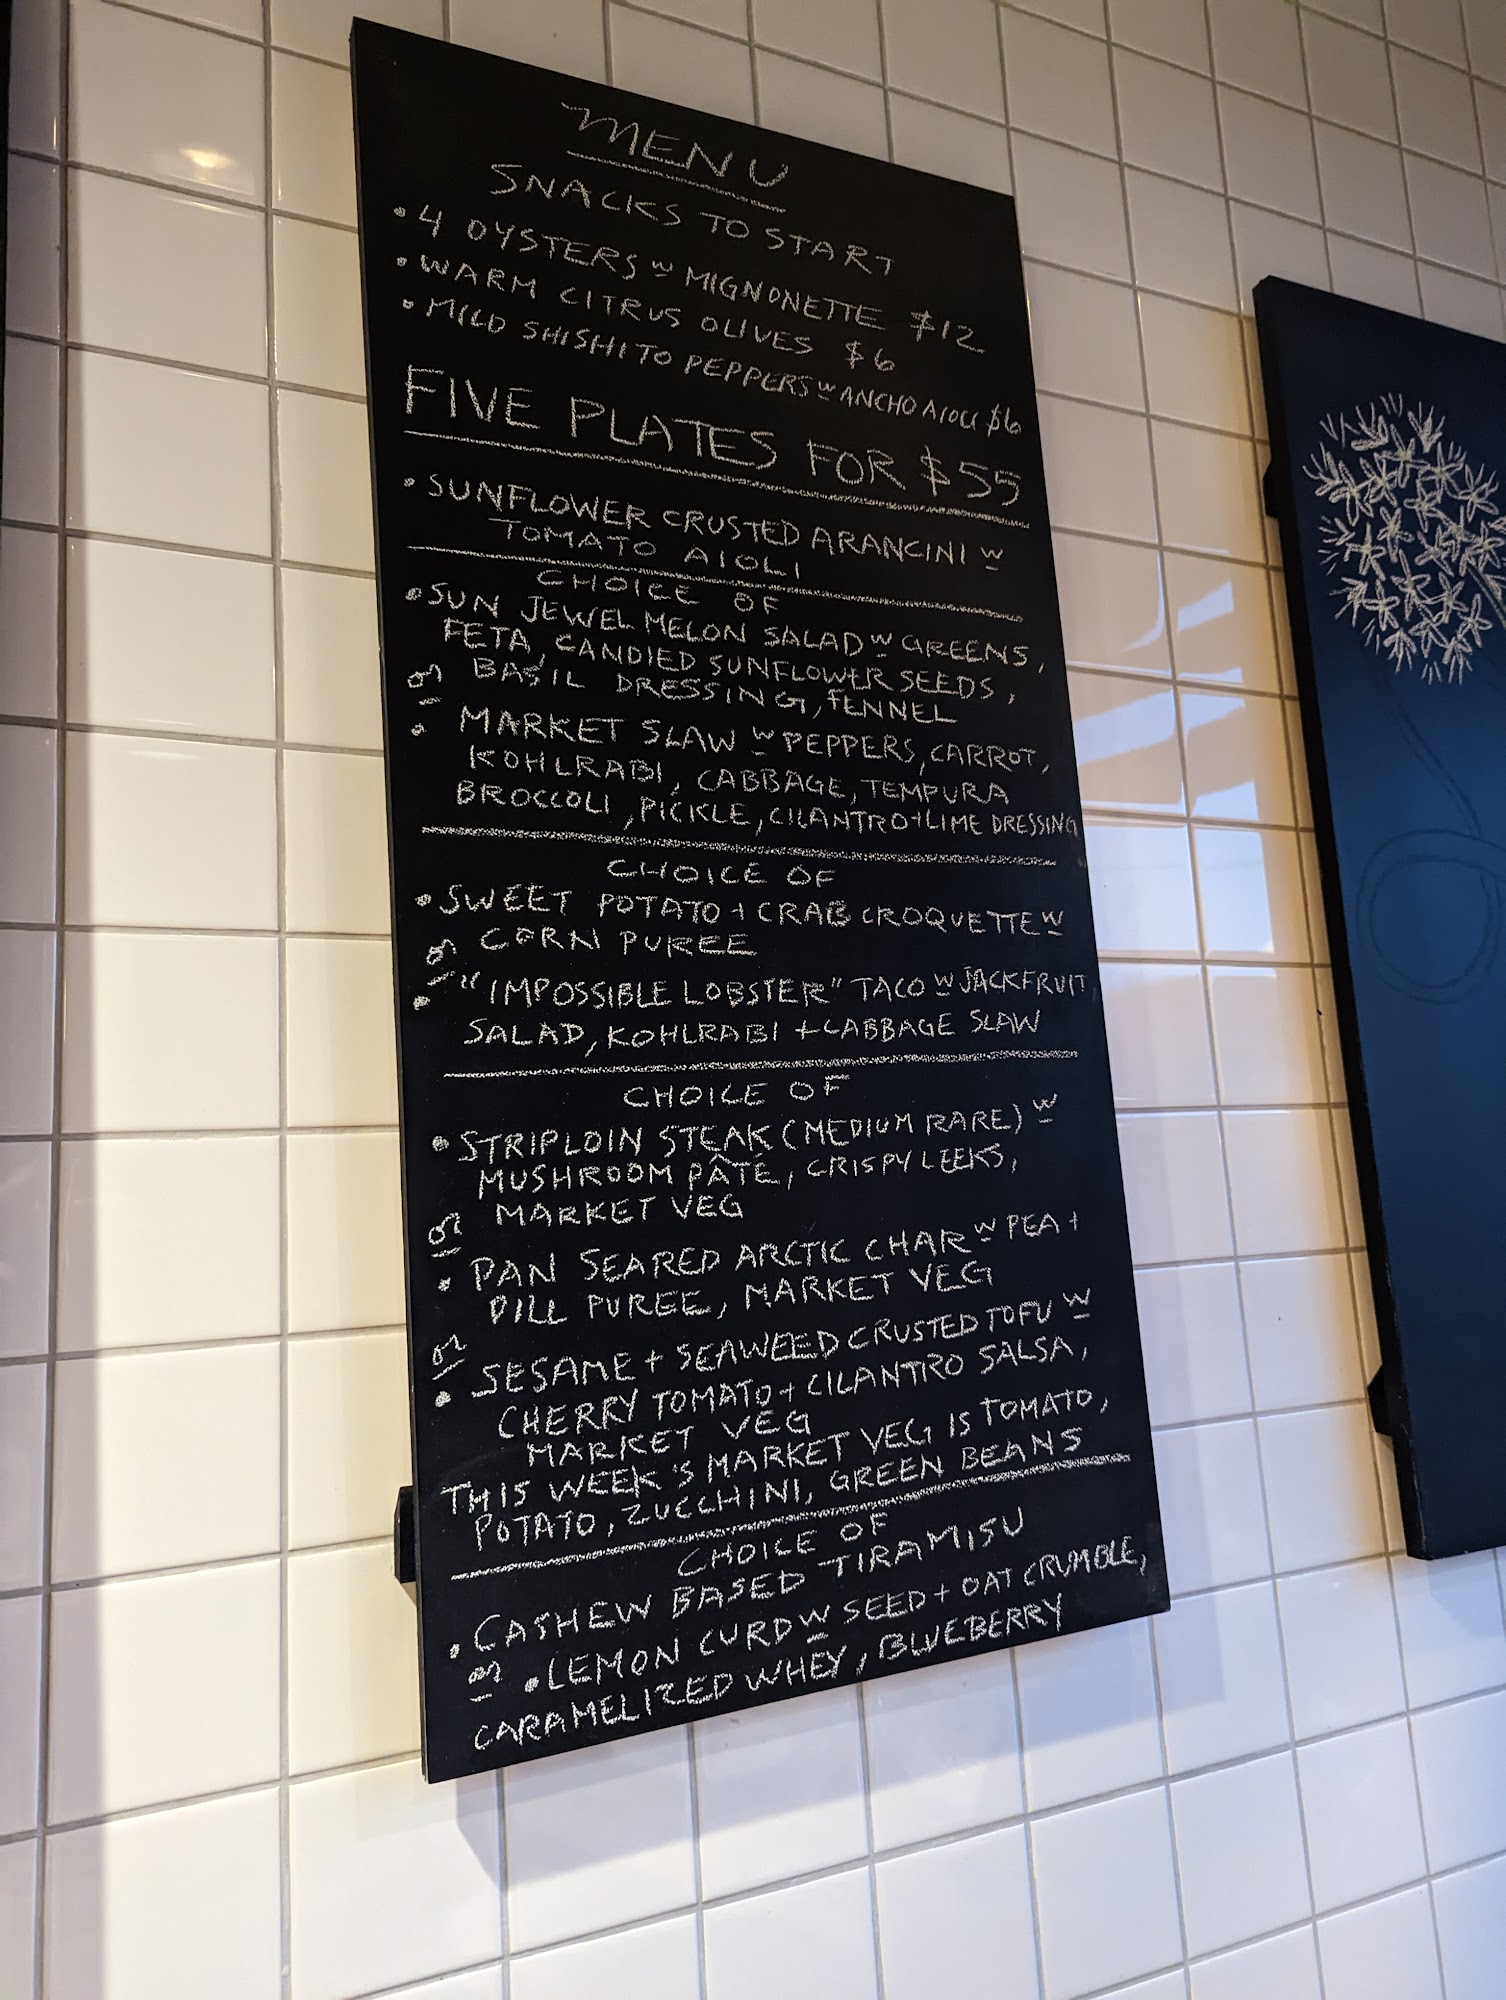 MENU
SNACKS TO START
• 4 OYSTERS w MIGNONETTE $12
• WARM CITRUS OLIVES $6
• MILD SHISHITO PEPPERS w ANCHO AIOLI $6
FIVE PLATES FOR $55
• SUNFLOWER CRUSTED ARANCINI w
TOMATO AIOLI
CHOICE OF
• SUN JEWEL MELON SALAD w GREENS,
FETA, CANDIED SUNFLOWER SEEDS,
or BASIL DRESSING, FENNEL
• MARKET SLAW w PEPPERS, CARROT,
KOHLRABI, CABBAGE, TEMPURA
BROCCOLI, PICKLE, CILANTRO + LIME DRESSING
CHOICE OF
• SWEET POTATO + CRAB CROQUETTE w
or CORN PUREE
• "IMPOSSIBLE LOBSTER" TACO w JACKFRUIT,
SALAD, KOHLRABI + CABBAGE SLAW
CHOICE OF
• STRIPLOIN STEAK (MEDIUM RARE) w
MUSHROOM PÂTÉ, CRISPY LEEKS,
or MARKET VEG
• PAN SEARED ARCTIC CHAR w PEA +
DILL PUREE, MARKET VEG
or
• SESAME + SEAWEED CRUSTED TOFU w
CHERRY TOMATO + CILANTRO SALSA,
MARKET VEG
THIS WEEK'S MARKET VEG IS TOMATO,
POTATO, ZUCCHINI, GREEN BEANS
CHOICE OF
• CASHEW BASED TIRAMISU
or • LEMON CURD w SEED + OAT CRUMBLE,
CARAMELIZED WHEY, BLUEBERRY